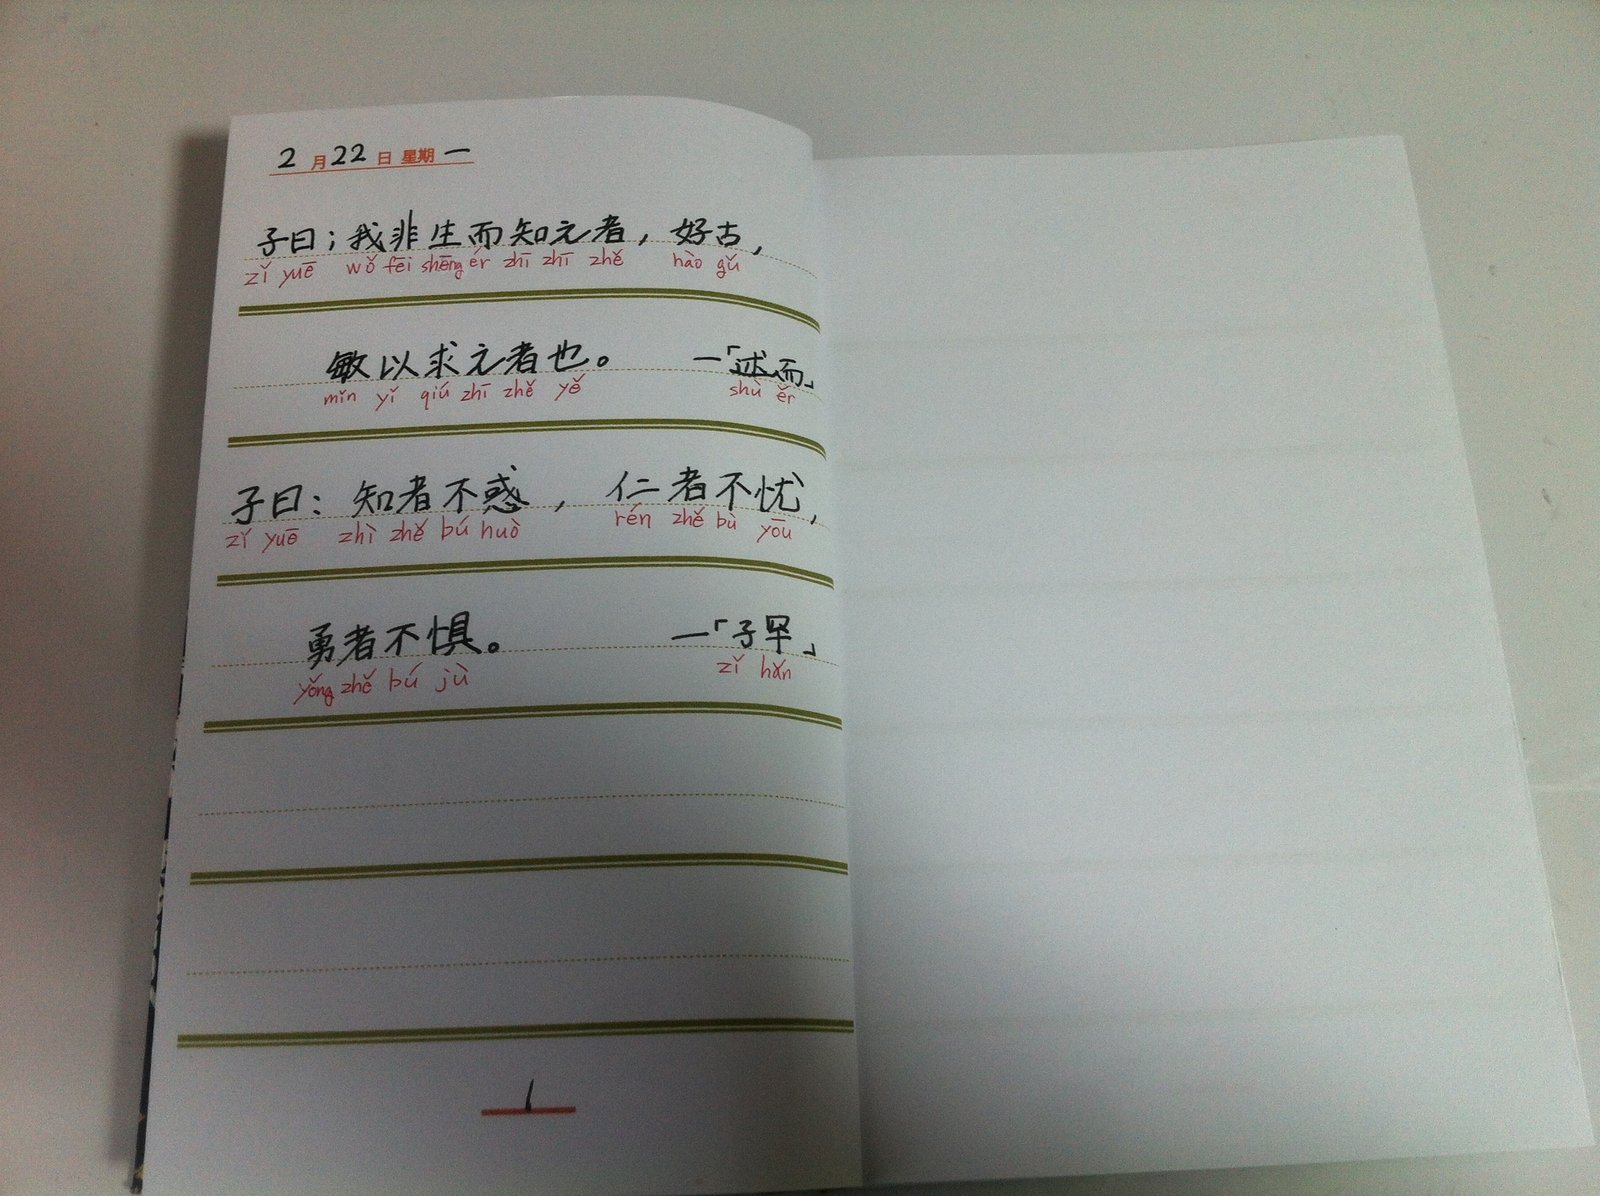 2月22日 星期一
子曰;我非生而知之者,好古,
zǐ yuē wǒ fēi shēng ér zhī zhī zhě hào gǔ
敏以求之者也。 —「述而」
mǐn yǐ qiú zhī zhě yě shù ěr
子曰:知者不惑,仁者不忧,
zǐ yuē zhì zhě bú huò rén zhě bù yōu
勇者不惧。 —「子罕」
yǒng zhě bú jù zǐ hǎn
1